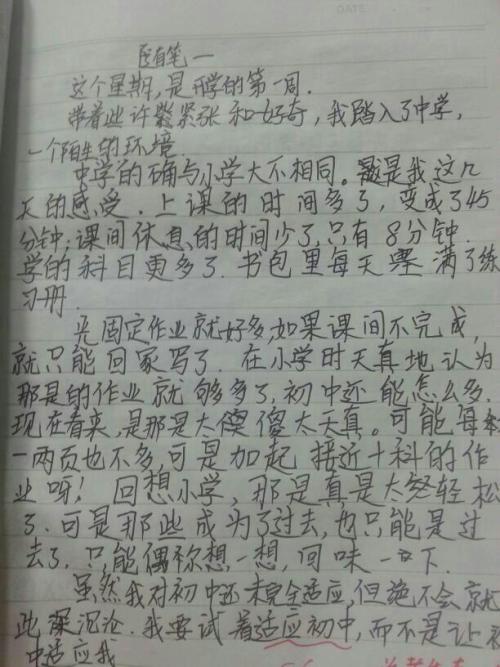 随笔一
这个星期,是开学的第一周.
带着些许紧张和好奇,我踏入了中学,
一个陌生的环境.
中学的确与小学大不相同。是我这几
天的感受.上课的时间多了,变成了45
分钟;课间休息的时间少了,只有8分钟.
学的科目更多了.书包里每天塞满了练
习册.
光固定作业就好多,如果课间不完成,
就只能回家写了.在小学时天真地认为
那是的作业就够多了,初中还能怎么多.
现在看来,是那是太傻太天真。可能每本
一两页也不多,可是加起接近十科的作
业呀!回想小学,那是真是太轻松
了.可是那些成为了过去,也只能是过
去了.只能偶称想一想,回味一下.
虽然我对初中还未完全适应,但绝不会就
此沉沦.我要试着适应初中,而不是让初
中适应我